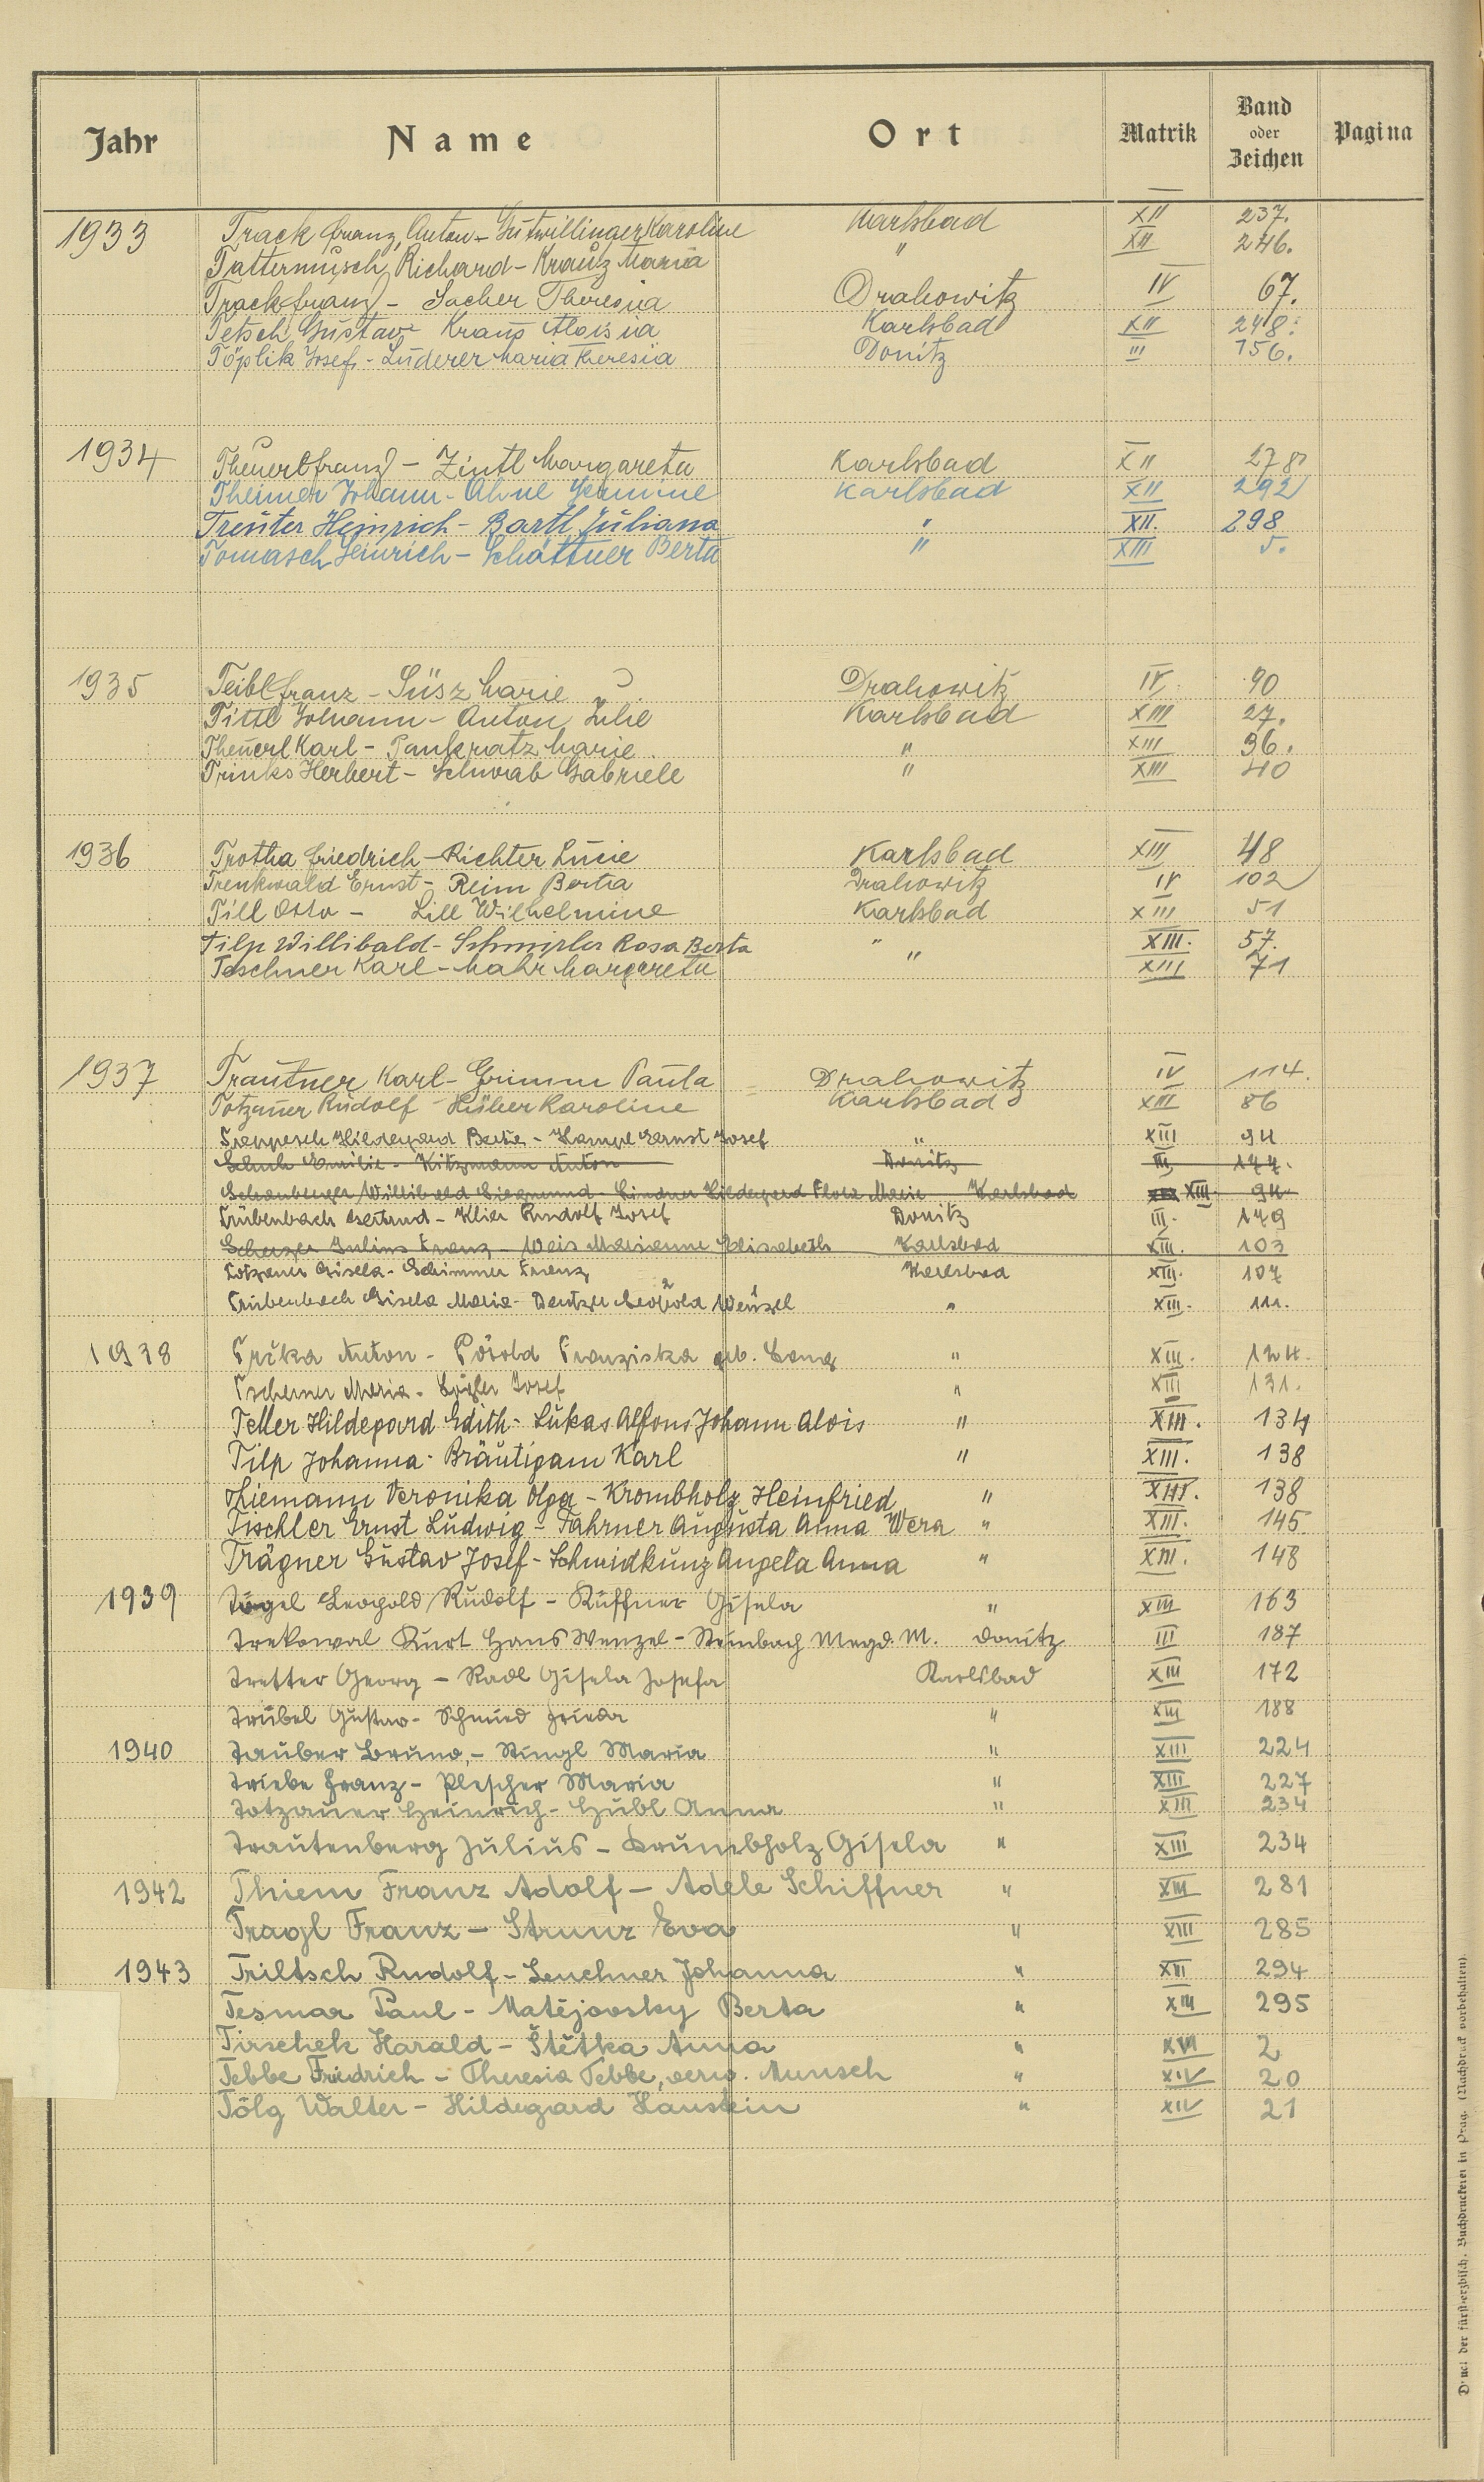 Jahr Name Ort Matrik Band oder Zeichen Pagina
1933 Track Franz, Anton - Gutwillinger Karoline Karlsbad XII 237.
Tattermusch Richard - Krauz Maria " XII 246.
Track Franz - Sacher Theresia Drahowitz IV 67.
Petsch Gustav - Kraus Aloisia Karlsbad XII 248.
Töplik Josef - Luderer Maria Theresia Donitz III 156.
1934 Theuerl Franz - Zintl Margareta Karlsbad XII 278
Theimer Johann - Ahne Hermine Karlsbad XII 292
Treuter Heinrich - Bartl Juliana " XII. 298
Tomasch Heinrich - Schattner Berta " XIII 5.
1935 Teibl Franz - Süsz Marie Drahowitz IV. 90
Tittl Johann - Anton Julie Karlsbad XIII 27.
Theuerl Karl - Pankratz Marie " XIII 36.
Trinks Herbert - Schwab Gabriele " XIII 40
1936 Trotha Friedrich - Richter Lucie Karlsbad XIII 48
Trenkwald Ernst - Reim Berta Drahowitz IV 102
Till Otto - Lill Wilhelmine Karlsbad XIII 51
Tilp Willibald - Rosa Berta " XIII. 57.
Teschner Karl - Mahr Margareta " XIII 71
1937 Trautner Karl - Grimm Paula Drahowitz IV 114.
Totzauer Rudolf - Huber Karoline Karlsbad XIII 86
Treppesch Hildegard Berta - Hampl Ernst Josef " XIII 94
Schuh Emilie - Kitzmann Anton Donitz III 177.
Schamberger Willibald Siegmund - Lindner Hildegard Flora Marie Karlsbad XIII. 94
Trübenbach Gertrud - Klier Rudolf Josef Donitz III. 179
Scherzer Julius Franz - Weis Marianne Elisabeth Karlsbad XIII. 103
Totzauer Gisela - Schimmer Franz Karlsbad XIII. 107
Trübenbach Gisela Maria - Leopold Wenzel " XIII. 111.
1938 Trčka Anton - Franziska geb. Lang " XIII. 124.
Tscherner Maria - Josef " XIII 131.
Teller Hildegard Edith - Lukas Alfons Johann Alois " XIII. 134
Tilp Johanna - Bräutigam Karl " XIII. 138
Thiemann Veronika Olga - Krombholz Heinfried " XIII. 138
Tischler Ernst Ludwig - Fahrner Augusta Anna Wera " XIII. 145.
Trägner Gustav Josef - Schmidkunz Angela Anna " XIII. 148
1939 Tögel Leopold Rudolf - Ruffner Gisela " XIII 163
Trekowal Kurt Hans Wenzel - Steinbach Magd. M. Donitz III 187
Tretter Georg - Radl Gisela Josefa Karlsbad XIII 172
Trübel Gustav - Schmied Frieda " XIII 188
1940 Tauber Bruno, - Stingl Maria " XIII 224
Triebe Franz - Plescher Maria " XIII 227
Totzauer Heinrich - Hubl Anna " XIII 234
Trautenberg Julius - Krumbholz Gisela " XIII 234
1942 Thiem Franz Adolf - Adele Schiffner " XIII 281
Tragl Franz - Strunz Eva " XIII 285
1943 Triltsch Rudolf - Lenchner Johanna " XIII 294
Tesmar Paul - Matějovsky Berta " XIII 295
Tirschek Harald - Štětka Anna " XVI 2
Tebbe Friedrich - Theresia Tebbe, verw. Munsch " XIV 20
Tölg Walter - Hildegard Haustein " XIV 21
Druck der fürst-erzbisch. Buchdruckerei in Prag. (Nachdruck vorbehalten)